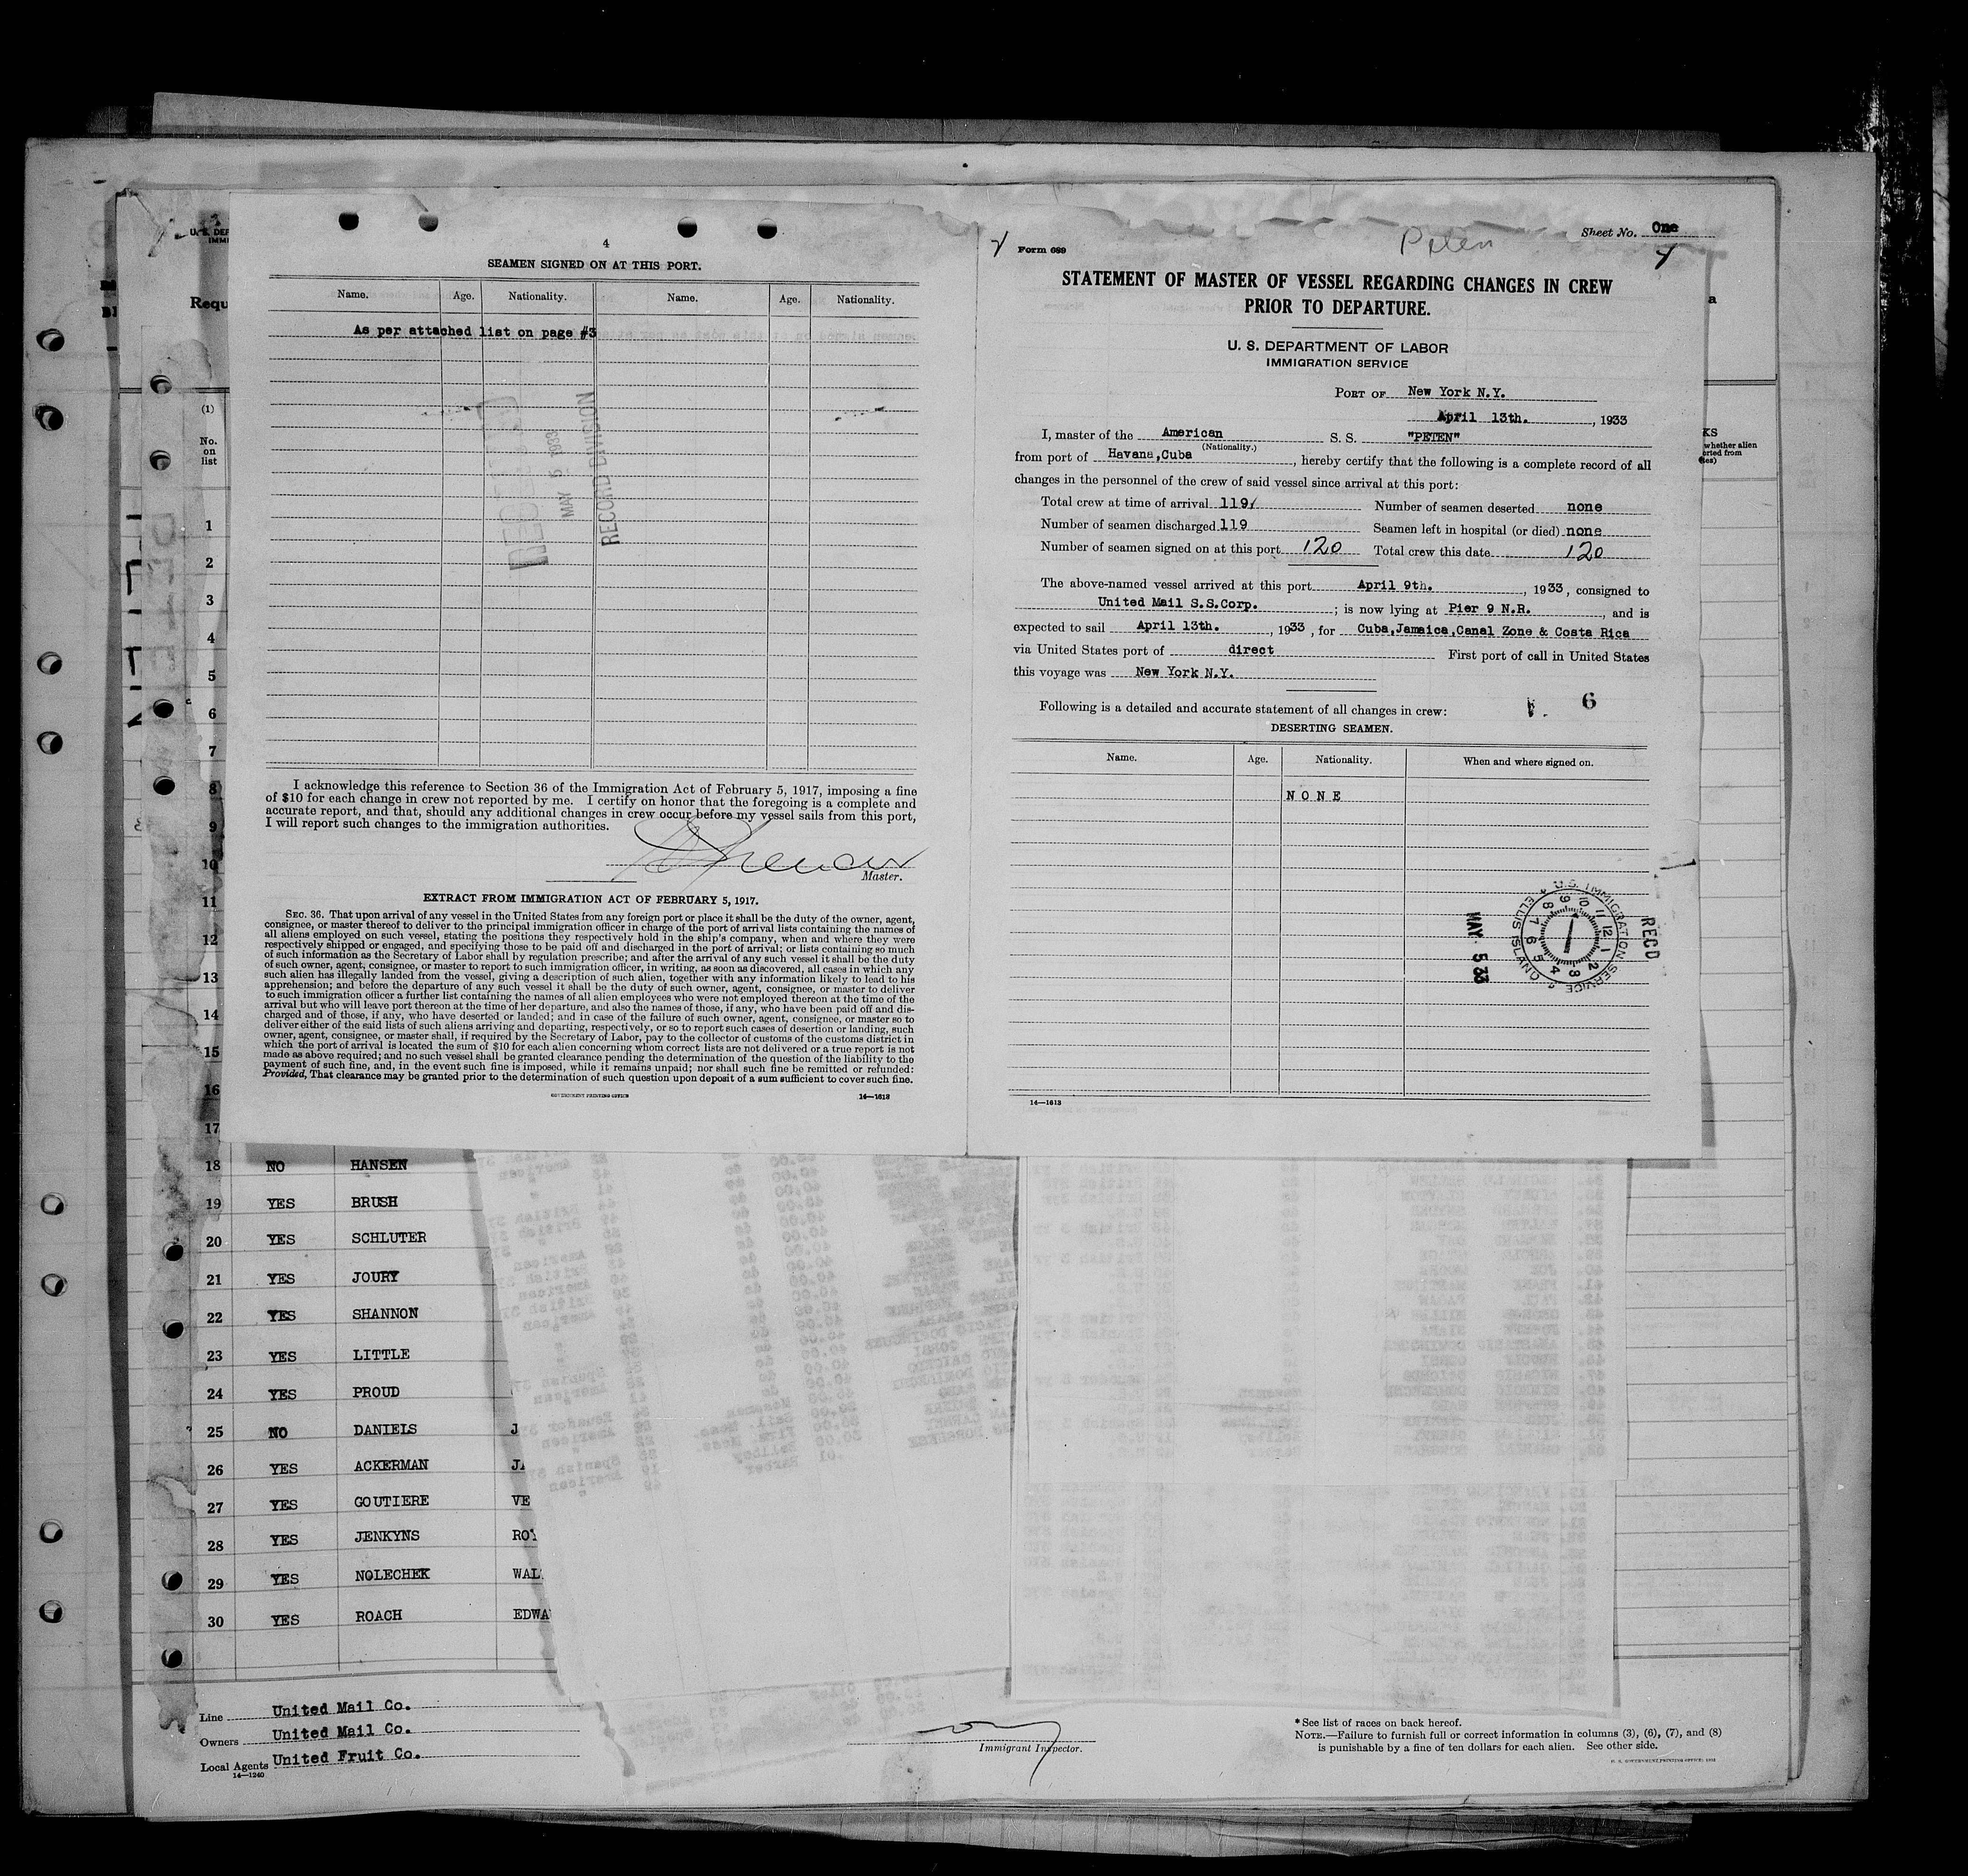 4
SEAMEN SIGNED ON AT THIS PORT.
Name. Age. Nationality. Name. Age. Nationality.
As per attached list on page #3
MAY 5 1933
RECORD DIVISION
I acknowledge this reference to Section 36 of the Immigration Act of February 5, 1917, imposing a fine
of $10 for each change in crew not reported by me. I certify on honor that the foregoing is a complete and
accurate report, and that, should any additional changes in crew occur before my vessel sails from this port,
I will report such changes to the immigration authorities.
Master.
EXTRACT FROM IMMIGRATION ACT OF FEBRUARY 5, 1917.
SEC. 36. That upon arrival of any vessel in the United States from any foreign port or place it shall be the duty of the owner, agent,
consignee, or master thereof to deliver to the principal immigration officer in charge of the port of arrival lists containing the names of
all aliens employed on such vessel, stating the positions they respectively hold in the ship's company, when and where they were
respectively shipped or engaged, and specifying those to be paid off and discharged in the port of arrival; or lists containing so much
of such information as the Secretary of Labor shall by regulation prescribe; and after the arrival of any such vessel it shall be the duty
of such owner, agent, consignee, or master to report to such immigration officer, in writing, as soon as discovered, all cases in which any
such alien has illegally landed from the vessel, giving a description of such alien, together with any information likely to lead to his
apprehension; and before the departure of any such vessel it shall be the duty of such owner, agent, consignee, or master to deliver
to such immigration officer a further list containing the names of all alien employees who were not employed thereon at the time of the
arrival but who will leave port thereon at the time of her departure, and also the names of those, if any, who have been paid off and dis-
charged and of those, if any, who have deserted or landed; and in case of the failure of such owner, agent, consignee, or master so to
deliver either of the said lists of such aliens arriving and departing, respectively, or so to report such cases of desertion or landing, such
owner, agent, consignee, or master shall, if required by the Secretary of Labor, pay to the collector of customs of the customs district in
which the port of arrival is located the sum of $10 for each alien concerning whom correct lists are not delivered or a true report is not
made as above required; and no such vessel shall be granted clearance pending the determination of the question of the liability to the
payment of such fine, and, in the event such fine is imposed, while it remains unpaid; nor shall such fine be remitted or refunded:
Provided, That clearance may be granted prior to the determination of such question upon deposit of a sum sufficient to cover such fine.
GOVERNMENT PRINTING OFFICE 14—1613
Peten
Sheet No. One
Form 689
STATEMENT OF MASTER OF VESSEL REGARDING CHANGES IN CREW
PRIOR TO DEPARTURE.
U. S. DEPARTMENT OF LABOR
IMMIGRATION SERVICE
PORT OF New York N.Y.
April 13th. , 1933
I, master of the American S. S. "PETEN"
(Nationality.)
from port of Havana,Cuba , hereby certify that the following is a complete record of all
changes in the personnel of the crew of said vessel since arrival at this port:
Total crew at time of arrival 119 Number of seamen deserted none
Number of seamen discharged 119 Seamen left in hospital (or died) none
Number of seamen signed on at this port 120 Total crew this date 120
The above-named vessel arrived at this port April 9th. , 1933, consigned to
United Mail S.S.Corp. ; is now lying at Pier 9 N.R. , and is
expected to sail April 13th. , 1933, for Cuba,Jamaica,Canal Zone & Costa Rica
via United States port of direct First port of call in United States
this voyage was New York N.Y.
6
Following is a detailed and accurate statement of all changes in crew:
DESERTING SEAMEN.
Name. Age. Nationality. When and where signed on.
NONE
RECD
U.S. IMMIGRATION SERVICE
ELLIS ISLAND
MAY 5 33
14—1613
(1)
No.
on
list
1
2
3
4
5
6
7
8
9
10
11
12
13
14
15
16
17
18 NO HANSEN
19 YES BRUSH
20 YES SCHLUTER
21 YES JOURY
22 YES SHANNON
23 YES LITTLE
24 YES PROUD
25 NO DANIELS J
26 YES ACKERMAN
27 YES GOUTIERE VE
28 YES JENKYNS ROY
29 YES NOLECHEK WAL
30 YES ROACH EDWA
Line United Mail Co.
Owners United Mail Co.
Local Agents United Fruit Co.
14—1240
Immigrant Inspector.
* See list of races on back hereof.
NOTE.—Failure to furnish full or correct information in columns (3), (6), (7), and (8)
is punishable by a fine of ten dollars for each alien. See other side.